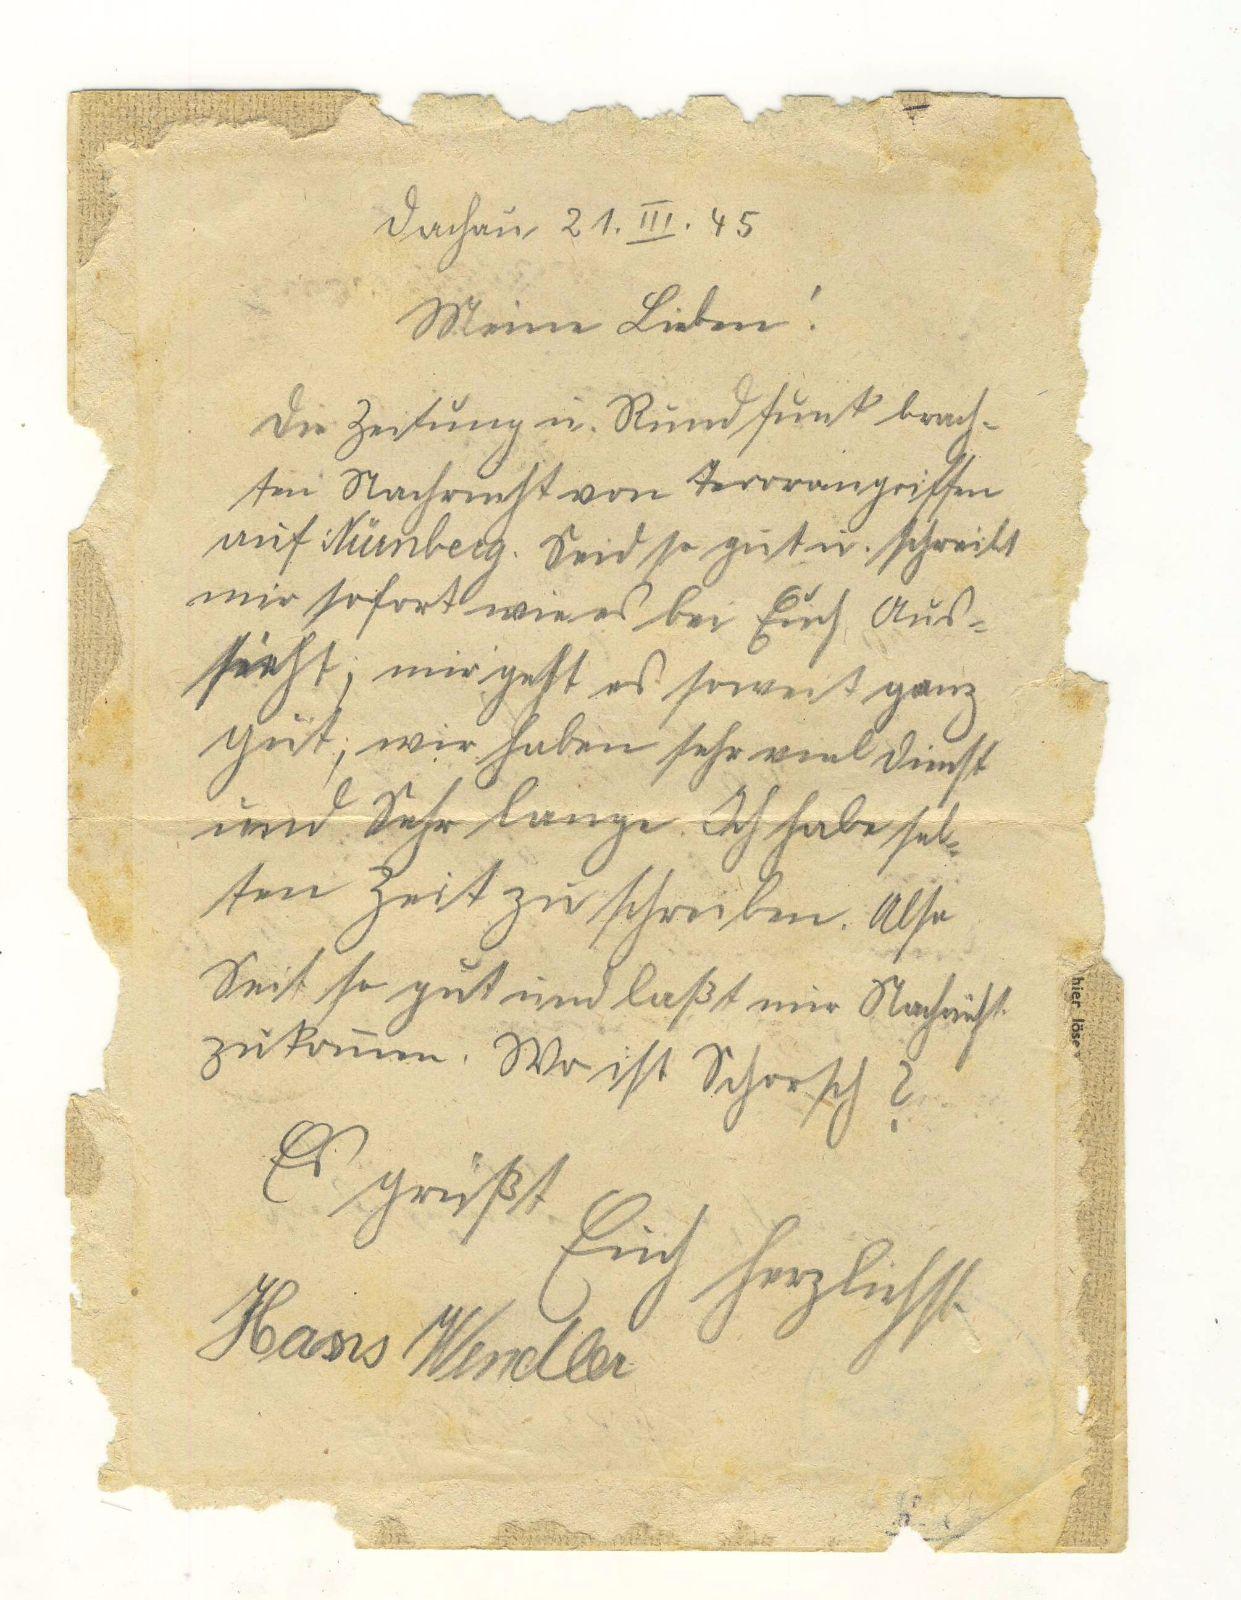 Dachau 21. III. 45
Meine Lieben!
Die Zeitung u. Rundfunk brach-
ten Nachricht von Terrorangriffen
auf Nürnberg. Seid so gut u. schreibt
mir sofort wie es bei Euch Aus-
sieht, mir geht es soweit ganz
gut, wir haben sehr viel Dienst
und Sehr lange. Ich habe sel-
ten Zeit zu schreiben. Also
Seit so gut und laßt mir Nachricht
zukommen. Wo ist Schorsch?
Es grüßt
Euch herzlichst
Hans Wendler
hier löse